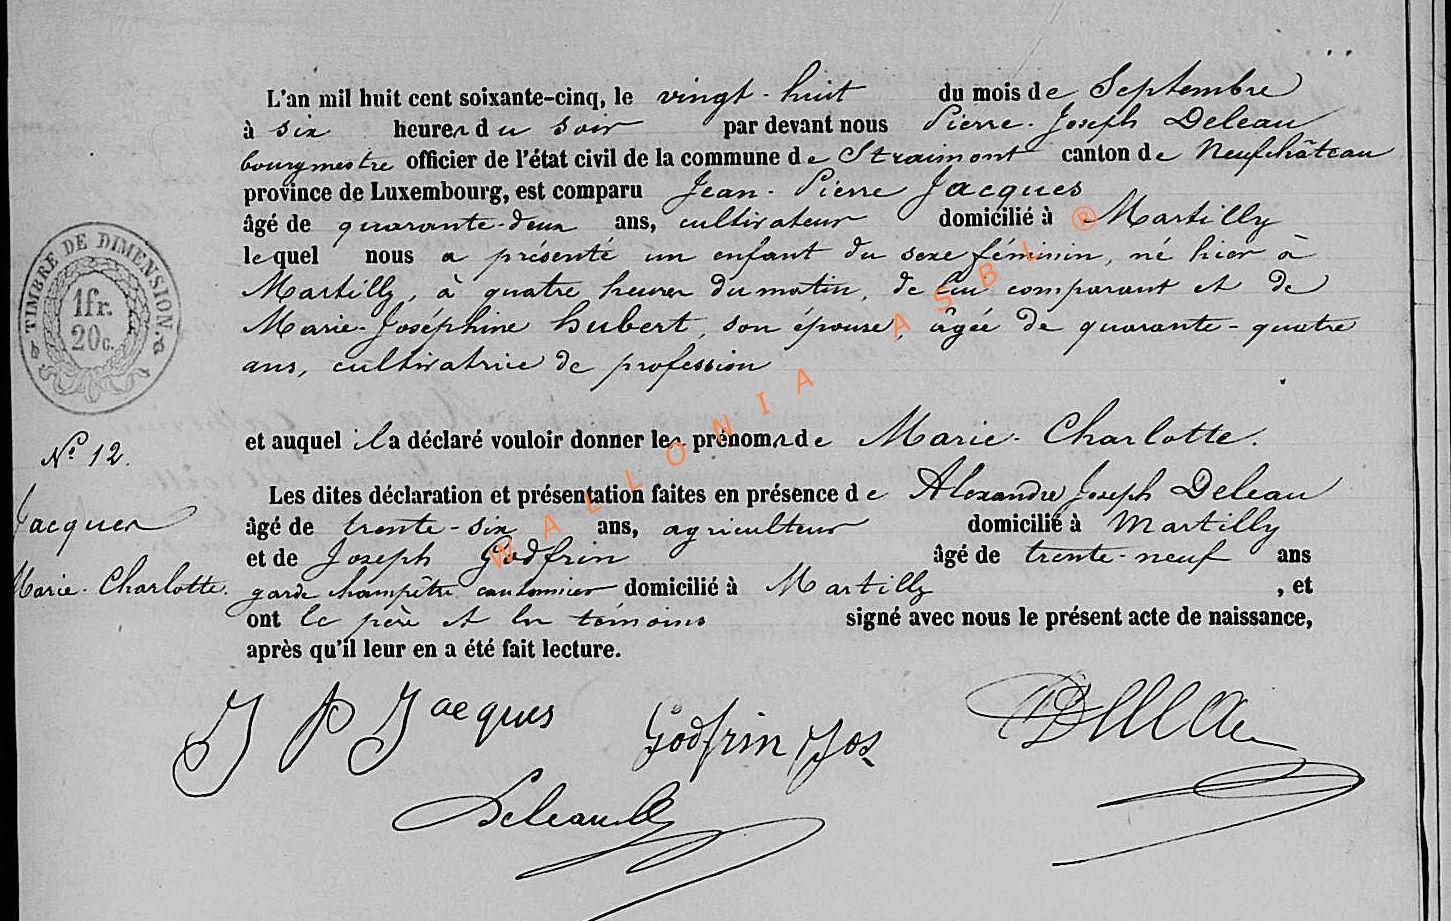 L'an mil huit cent soixante-cinq, le vingt-huit du mois de Septembre
à six heures du soir par devant nous Pierre-Joseph Deleau
bourgmestre officier de l'état civil de la commune de Straimont canton de Neufchâteau
province de Luxembourg, est comparu Jean-Pierre Jacques
âgé de quarante-deux ans, cultivateur domicilié à Martilly
lequel nous a présenté un enfant du sexe féminin, né hier à
Martilly, à quatre heures du matin, de lui comparant et de
Marie-Joséphine Hubert, son épouse, âgée de quarante-quatre
ans, cultivatrice de profession
et auquel il a déclaré vouloir donner les prénoms de Marie-Charlotte.
Les dites déclaration et présentation faites en présence de Alexandre Joseph Deleau
âgé de trente-six ans, agriculteur domicilié à Martilly
et de Joseph Godfrin âgé de trente-neuf ans
garde champêtre cantonnier domicilié à Martilly , et
ont le père et les témoins signé avec nous le présent acte de naissance,
après qu'il leur en a été fait lecture.
TIMBRE DE DIMENSION.
1fr.
20c.
N° 12.
Jacques
Marie-Charlotte.
J P Jacques
Godfrin Jos
WALLONIA ASBL ®